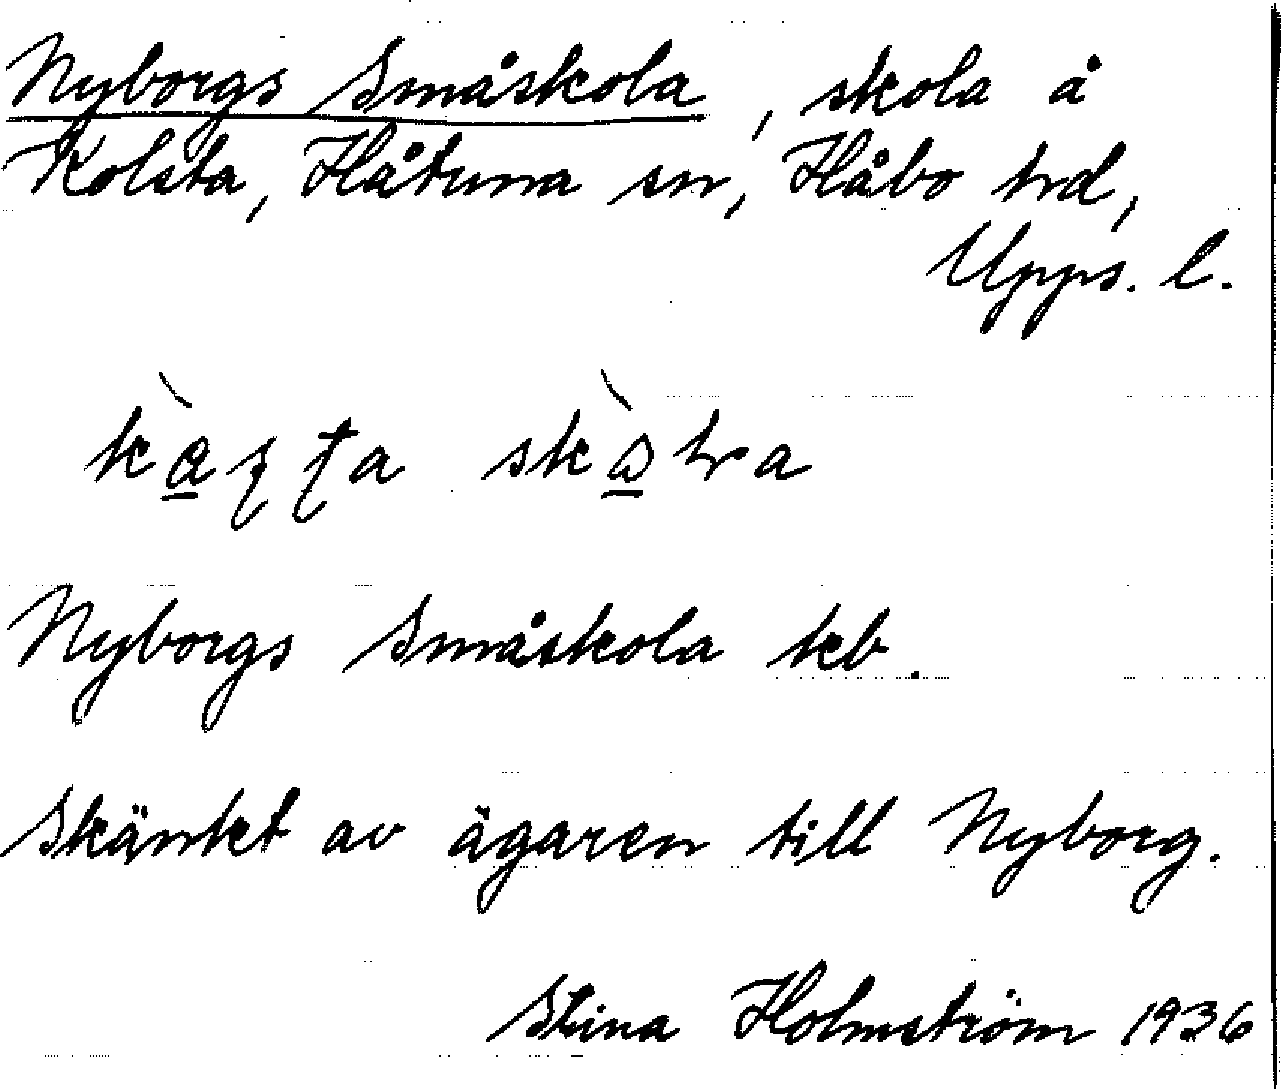 Nyborgs Småskola, skola å
Kolsta, Håtuna sn, Håbo hd,
Upps. l.
Nyborgs Småskola kb.
Skänket av ägaren till Nyborg.
Stina Holmström 1936